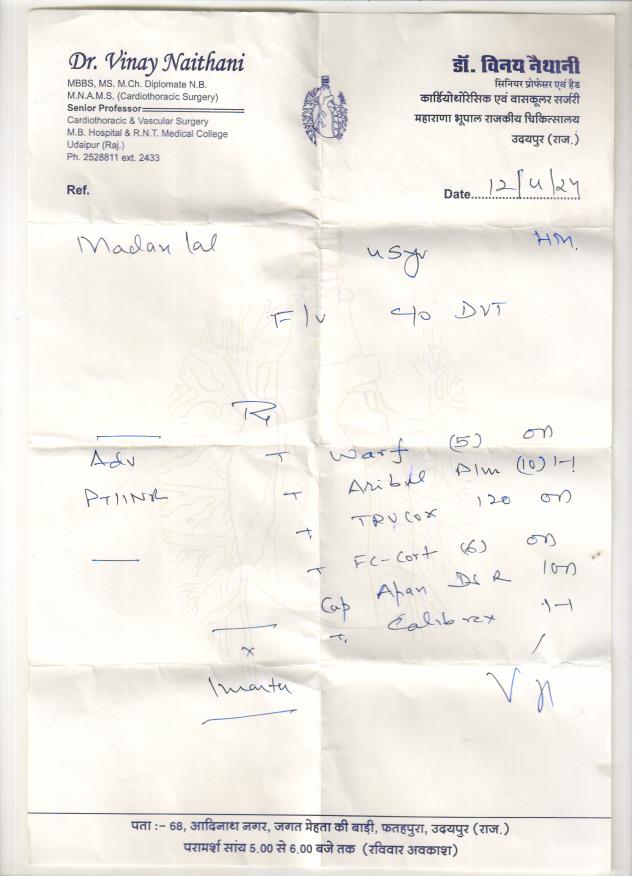 Dr. Vinay Naithani
MBBS, MS. M.Ch. Diplomate N.B.
M.N.A.M.S. (Cardiothoracic Surgery)
Senior Professor
Cardiothoracic & Vascular Surgery
M.B. Hospital & R.N.T. Medical College
Udaipur (Raj.)
Ph. 2528811 ext. 2433
डॉ. विनय नैथानी
सिनियर प्रोफेसर एवं हैड
कार्डियोथोरेसिक एवं वासकूलर सर्जरी
महाराणा भूपाल राजकीय चिकित्सालय
उदयपुर (राज.)
Ref.
Date
Madan lal
F/U c/o DVT
Rx
Adv
PT/INR
T Warf (5) OD
T
T TRUCOX 120 OD
T FC-Cort (6) OD
Cap DSR 1OD
T.
x
VN
पता :– 68, आदिनाथ नगर, जगत मेहता की बाड़ी, फतहपुरा, उदयपुर (राज.)
परामर्श सांय 5.00 से 6.00 बजे तक (रविवार अवकाश)